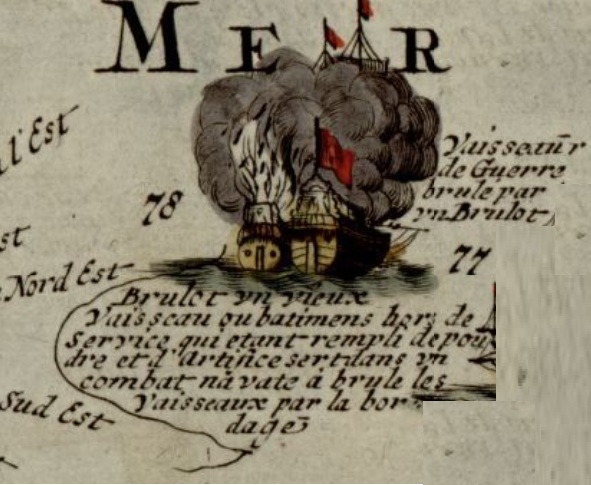 MER
l'Est
Vaisseau
de Guerre
brule par
vn Brulot
78
st
77
Nord Est
Brulot vn vieux
Vaisseau ou batimens hors de
Service qui etant rempli de pou
dre et d'Artifice sert dans vn
combat navale à brule les
Vaisseaux par la bor
dage
Sud Est